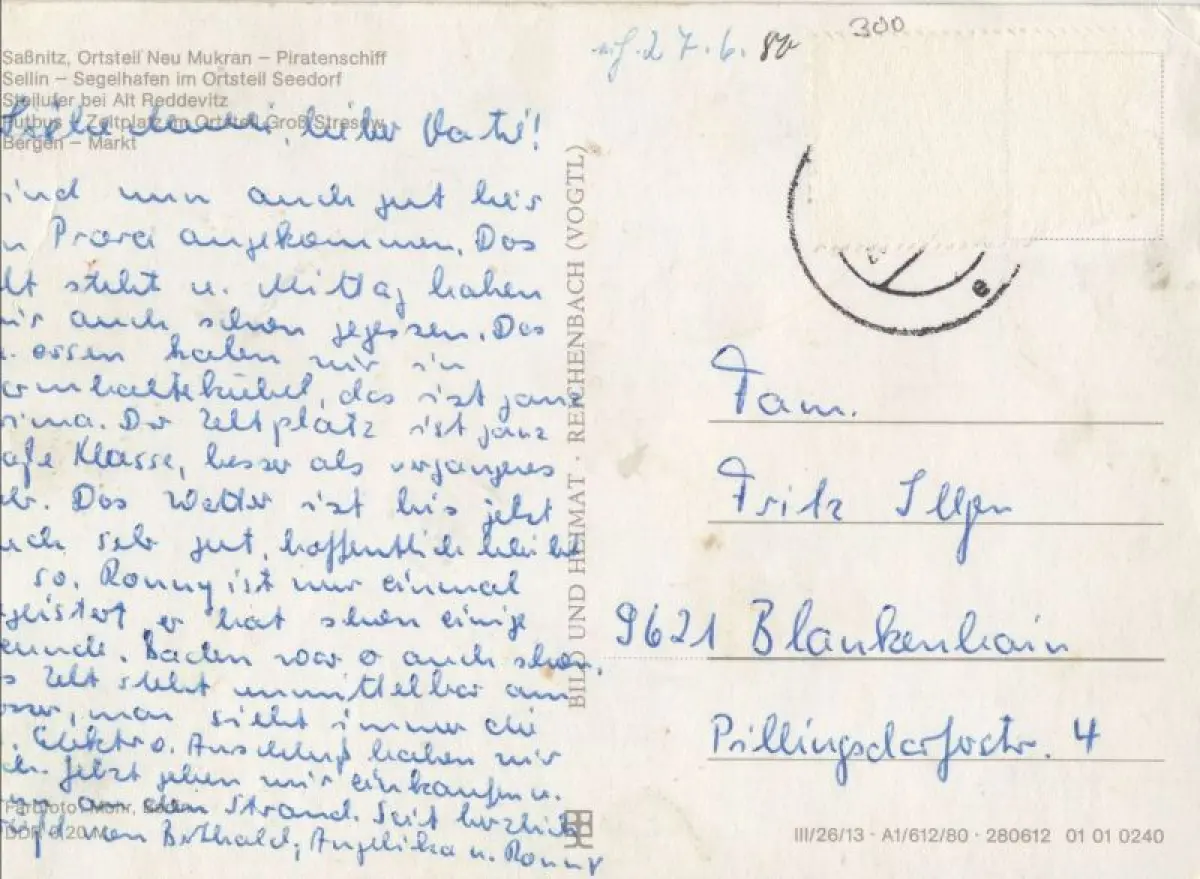 Saßnitz, Ortsteil Neu Mukran – Piratenschiff
Sellin – Segelhafen im Ortsteil Seedorf
Steilufer bei Alt Reddevitz
Putbus – Zeltplatz im Ortsteil Groß Stresow
Bergen – Markt
lieber Vati!
ind nun auch gut hier
n Prora angekommen. Das
lt steht u. Mittag haben
ir auch schon gegessen. Das
. essen haben wir in
armhaltekübel, das ist ganz
rima. Der Zeltplatz ist ganz
afe Klasse, besser als vergangenes
hr. Das Wetter ist bis jetzt
uch sehr gut, hoffentlich bleibt
so. Ronny ist nur einmal
geistert, er hat schon einige
eunde. Baden war o auch schon.
s Zelt steht unmittelbar am
sser, man sieht immer die
. Elektro. Anschluß haben wir
ch. Jetzt gehen wir einkaufen u.
an den Strand. Seit herzlich
von Berthold, Angelika u. Ronny
DDR
BILD UND HEIMAT · REICHENBACH (VOGTL)
27.6.
300
e
Fam.
Fritz Illgen
9621 Blankenhain
Pillingsdorferstr. 4
III/26/13 · A1/612/80 · 280612 01 01 0240